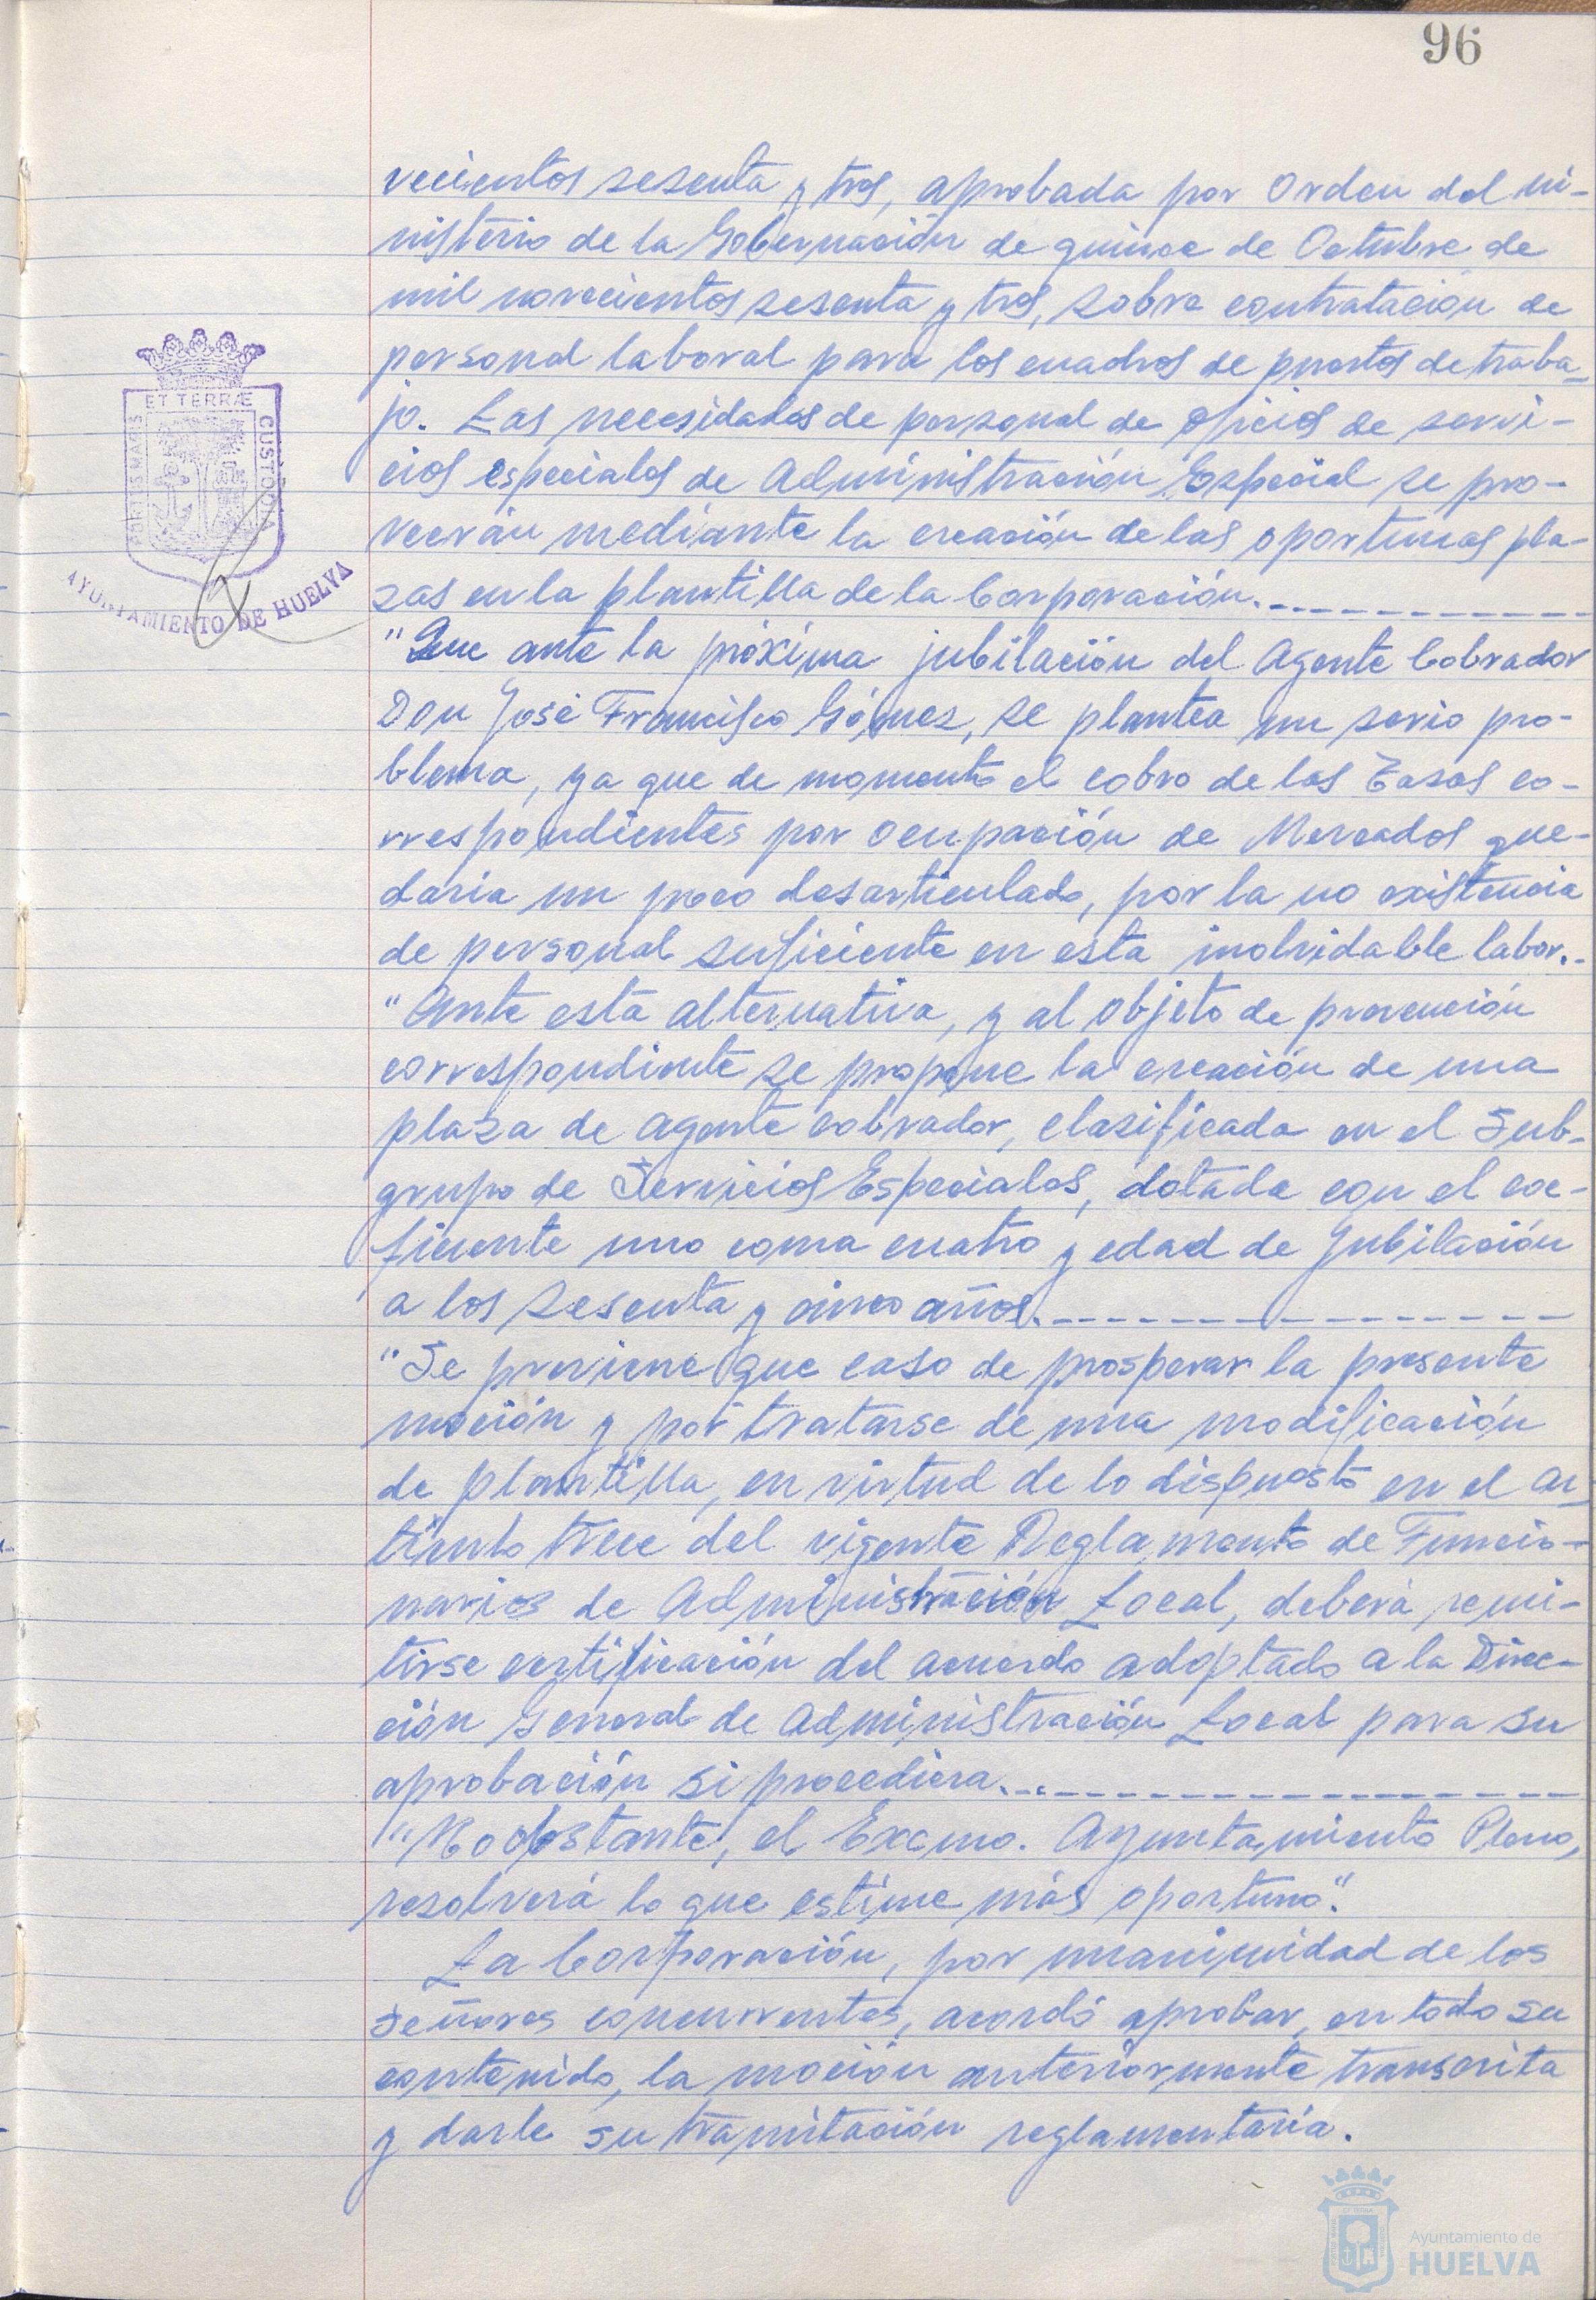 96
vecientos sesenta y tres, aprobada por Orden del Mi-
nisterio de la Gobernación de quince de Octubre de
mil novecientos sesenta y tres, sobre contratación de
personal laboral para los cuadros de puestos de traba-
jo. Las necesidades de personal de oficios de servi-
cios especiales de Administración Especial se pro-
veerán mediante la creación de las oportunas pla-
zas en la plantilla de la Corporación.
"Que ante la próxima jubilación del Agente Cobrador
Don José Francisco Gómez, se plantea un serio pro-
blema, ya que de momento el cobro de las Tasas co-
rrespondientes por ocupación de Mercados que-
daria un poco desarticulado, por la no existencia
de personal suficiente en esta inolvidable labor.
"Ante esta alternativa, y al objeto de prevención
correspondiente se propone la creación de una
plaza de agente cobrador, clasificada en el Sub-
grupo de Servicios Especiales, dotada con el coe-
ficiente uno coma cuatro y edad de jubilación
a los sesenta y cinco años.
"Se previene que caso de prosperar la presente
moción y por tratarse de una modificación
de plantilla, en virtud de lo dispuesto en el ar-
tículo trece del vigente Reglamento de Funcio-
narios de Administración Local, deberá remi-
tirse certificación del acuerdo adoptado a la Direc-
ción General de Administración Local para su
aprobación si procediera.
"No obstante, el Excmo. Ayuntamiento Pleno,
resolverá lo que estime más oportuno".
La Corporación, por unanimidad de los
señores concurrentes, acordó aprobar, en todo su
contenido, la moción anteriormente transcrita
y darle su tramitación reglamentaria.
PORTUS MARIS ET TERRÆ CUSTODIA
AYUNTAMIENTO DE HUELVA
Ayuntamiento de
HUELVA